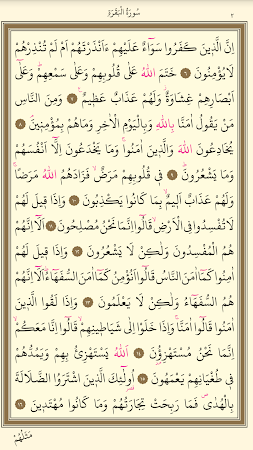 ٢ سُورَةُ الْبَقَرَةِ
اِنَّ الَّذِينَ كَفَرُوا سَوَٓاءٌ عَلَيْهِمْ ءَاَنْذَرْتَهُمْ اَمْ لَمْ تُنْذِرْهُمْ
لَا يُؤْمِنُونَ ﴿٦﴾ خَتَمَ اللّٰهُ عَلٰى قُلُوبِهِمْ وَعَلٰى سَمْعِهِمْ وَعَلٰٓى
اَبْصَارِهِمْ غِشَاوَةٌ وَلَهُمْ عَذَابٌ عَظِيمٌ ﴿٧﴾ وَمِنَ النَّاسِ
مَنْ يَقُولُ اٰمَنَّا بِاللّٰهِ وَبِالْيَوْمِ الْاٰخِرِ وَمَاهُمْ بِمُؤْمِنِينَ ﴿٨﴾
يُخَادِعُونَ اللّٰهَ وَالَّذِينَ اٰمَنُوا وَمَا يَخْدَعُونَ اِلَّٓا اَنْفُسَهُمْ
وَمَا يَشْعُرُونَ ﴿٩﴾ فِي قُلُوبِهِمْ مَرَضٌ فَزَادَهُمُ اللّٰهُ مَرَضًا
وَلَهُمْ عَذَابٌ اَلِيمٌ بِمَا كَانُوا يَكْذِبُونَ ﴿١٠﴾ وَاِذَا قِيلَ لَهُمْ
لَا تُفْسِدُوا فِي الْاَرْضِ قَالُٓوا اِنَّمَا نَحْنُ مُصْلِحُونَ ﴿١١﴾ اَلَٓا اِنَّهُمْ
هُمُ الْمُفْسِدُونَ وَلٰكِنْ لَا يَشْعُرُونَ ﴿١٢﴾ وَاِذَا قِيلَ لَهُمْ
اٰمِنُوا كَمَٓا اٰمَنَ النَّاسُ قَالُٓوا اَنُؤْمِنُ كَمَٓا اٰمَنَ السُّفَهَٓاءُ اَلَٓا اِنَّهُمْ
هُمُ السُّفَهَٓاءُ وَلٰكِنْ لَا يَعْلَمُونَ ﴿١٣﴾ وَاِذَا لَقُوا الَّذِينَ
اٰمَنُوا قَالُٓوا اٰمَنَّا وَاِذَا خَلَوْا اِلٰى شَيَاطِينِهِمْ قَالُٓوا اِنَّا مَعَكُمْ
اِنَّمَا نَحْنُ مُسْتَهْزِؤُنَ ﴿١٤﴾ اَللّٰهُ يَسْتَهْزِئُ بِهِمْ وَيَمُدُّهُمْ
فِي طُغْيَانِهِمْ يَعْمَهُونَ ﴿١٥﴾ اُو۬لٰٓئِكَ الَّذِينَ اشْتَرَوُا الضَّلَالَةَ
بِالْهُدٰى فَمَا رَبِحَتْ تِجَارَتُهُمْ وَمَا كَانُوا مُهْتَدِينَ ﴿١٦﴾
مَثَلُهُمْ